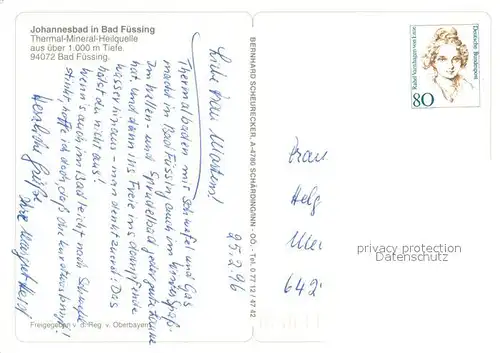 Johannesbad in Bad Füssing
Thermal-Mineral-Heilquelle
aus über 1.000 m Tiefe.
94072 Bad Füssing.
25.2.96
Liebe Frau Martens!
Thermalbaden mit Schwefel und Gas
macht in Bad Füssing auch im Winter Spaß.
Im Wellen- und Sprudelbad jeder gute Laune
hat, und dann ins Freie ins dampfende
Wasser hinaus – man denkt zuerst: Das
hält du nicht aus!
Wenn's auch im Bad leicht nach Schwefel
stinkt, hoffe ich doch, daß die Kur etwas bringt!
Herzliche Grüße
Ihre Margret
BERNHARD SCHEURECKER, A-4780 SCHÄRDING/INN - OÖ., Tel. 0 77 12 / 47 42
Freigegeben v. d. Reg. v. Oberbayern
Rahel Varnhagen von Ense
Deutsche Bundespost
80
Frau
Helg
642
privacy protection
Datenschutz